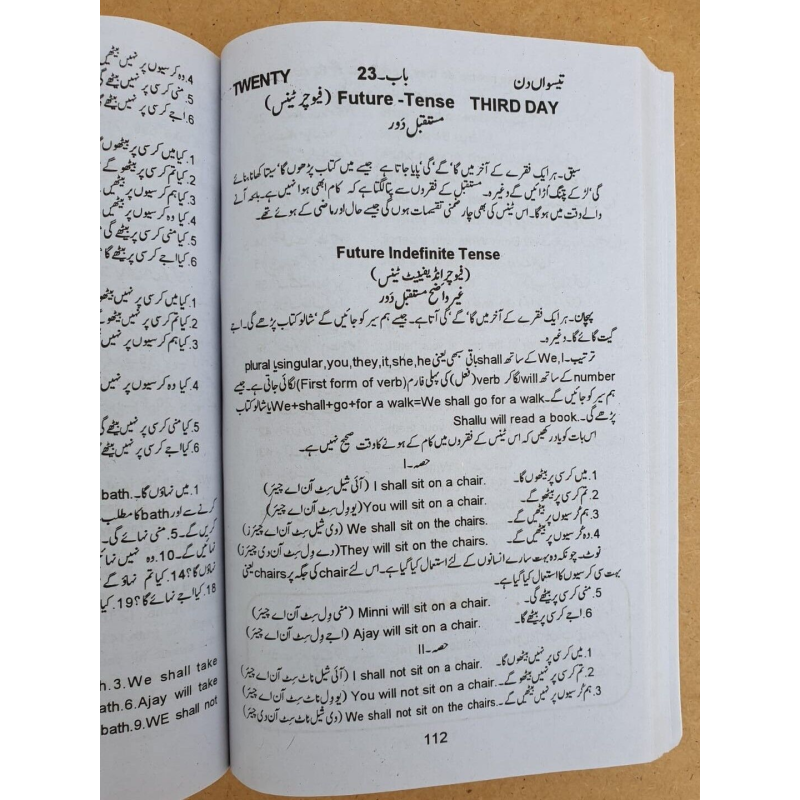 4. وہ کرسیوں پر نہیں بیٹھیں
5. منی کرسی پر نہیں بیٹھے
6. اجے کرسی پر نہیں بیٹھے
1. کیا میں کرسی پر بیٹھوں
2. کیا تم کرسی پر بیٹھو گے
3. کیا ہم کرسیوں پر بیٹھیں
4. کیا وہ کرسیوں پر بیٹھیں
5. کیا منی کرسی پر بیٹھے گی
6. کیا اجے کرسی پر بیٹھے گا
1. کیا میں کرسی پر نہیں بیٹھوں
2. کیا تم کرسی پر نہیں بیٹھو
3. کیا ہم کرسیوں پر نہیں
4. کیا وہ کرسیوں پر نہیں
5. کیا منی کرسی پر نہیں بیٹھے
6. کیا اجے کرسی پر نہیں بیٹھے
1. میں نہاؤں گا۔ bath.
کرنے سے اور bath کا مطلب
کریں گے۔ 5. منی نہائے گی۔
نہائیں گے۔ 10. وہ نہیں نہائیں
نہاؤں گا؟ 14. کیا تم نہاؤ گے
18. کیا اجے نہائے گا؟ 19. کیا
h.3.We shall take
th.6.Ajay will take
bath.9.WE shall not
تیسواں دن باب۔23 TWENTY
THIRD DAY Future -Tense (فیوچر ٹینس)
مستقبل دَور
سبق۔ ہر ایک فقرے کے آخر میں گا' گے' گی' پایا جاتا ہے جیسے میں کتاب پڑھوں گا' سیتا کھانا بنائے
گی' لڑکے پتنگ اُڑائیں گے وغیرہ۔ مستقبل کے فقروں سے پتا لگتا ہے کہ کام ابھی ہوا نہیں ہے۔ بلکہ آنے
والے وقت میں ہوگا۔ اس ٹینس کی بھی چار ضمنی تقسیمات ہوں گی جیسے حال اور ماضی کے ہوئے تھے۔
Future Indefinite Tense
(فیوچر انڈیفینیٹ ٹینس)
غیر واضح مستقبل دَور
پہچان۔ ہر ایک فقرے کے آخر میں گا' گے' گی آتا ہے۔ جیسے ہم سیر کو جائیں گے' شالو کتاب پڑھے گی۔ اجے
گیت گائے گا۔ وغیرہ۔
ترتیب۔ We,I کے ساتھ shall باقی سبھی یعنی singular,you,they,it,she,he یا plural
number کے ساتھ will لگا کر verb (فعل) کی پہلی فارم (First form of verb) لگائی جاتی ہے۔ جیسے
ہم سیر کو جائیں گے۔ We+shall+go+for a walk=We shall go for a walk یا شالو کتاب
پڑھے گی۔ Shallu will read a book.
اس بات کو یاد رکھیں کہ اس ٹینس کے فقروں میں کام کے ہونے کا وقت صحیح نہیں ہے۔
حصہ۔I
1. میں کرسی پر بیٹھوں گا۔ I shall sit on a chair. (آئی شیل سِٹ آن اے چیئر)
2. تم کرسی پر بیٹھو گے۔ You will sit on a chair. (یو وِل سِٹ آن اے چیئر)
3. ہم کُرسیوں پر بیٹھیں گے۔ We shall sit on the chairs. (وی شیل سِٹ آن اے چیئرز)
4. وہ کُرسیوں پر بیٹھیں گے۔ They will sit on the chairs. (دے وِل سِٹ آن دی چیئرز)
نوٹ۔ چونکہ وہ بہت سارے انسانوں کے لئے استعمال کیا گیا ہے۔ اس لئے chair کی جگہ پر chairs یعنی
بہت سی کرسیوں کا استعمال کیا گیا ہے۔
5. منی کرسی پر بیٹھے گی۔ Minni will sit on a chair. (منی وِل سِٹ آن اے چیئر)
6. اجے کرسی پر بیٹھے گا۔ Ajay will sit on a chair. (اجے وِل سِٹ آن اے چیئر)
حصہ۔II
1. میں کرسی پر نہیں بیٹھوں گا۔ I shall not sit on a chair. (آئی شیل ناٹ سِٹ آن اے چیئر)
2. تم کرسی پر نہیں بیٹھو گے۔ You will not sit on a chair. (یو وِل ناٹ سِٹ آن اے چیئر)
3. ہم کُرسیوں پر نہیں بیٹھیں گے۔ We shall not sit on the chairs. (وی شیل ناٹ سِٹ آن دی چیئر)
112